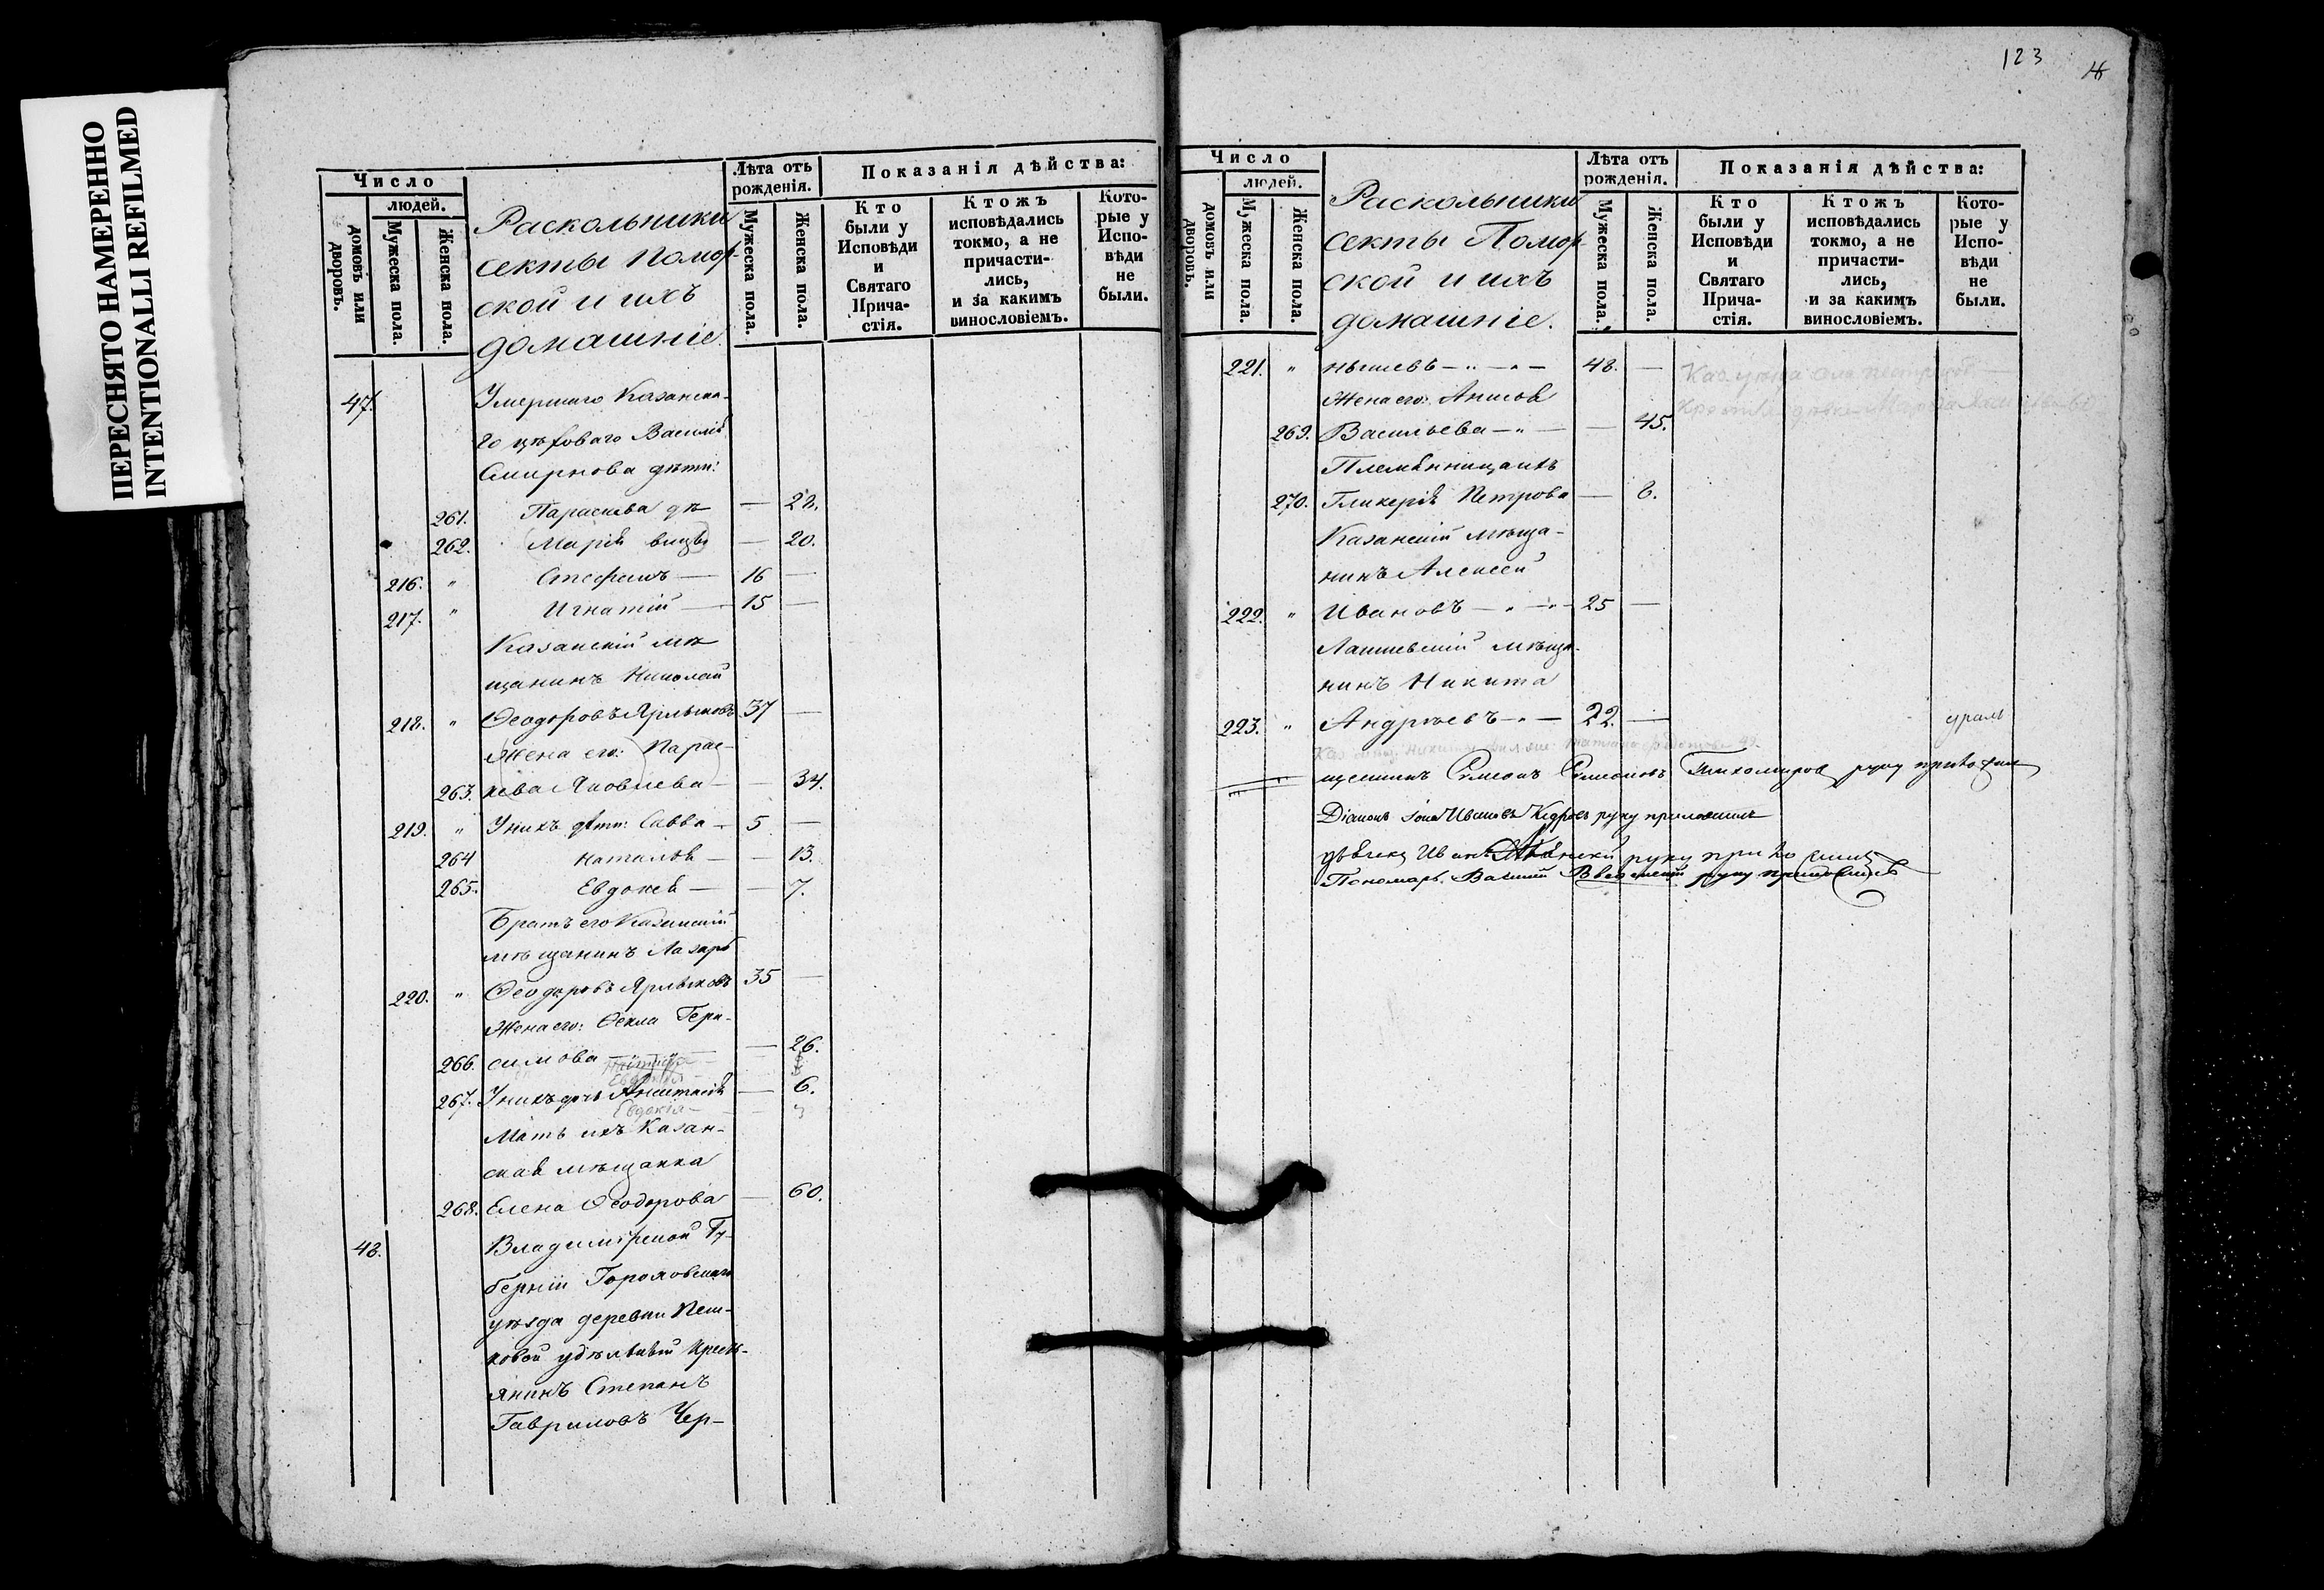 ПЕРЕСНЯТО НАМЕРЕННО
INTENTIONALLI REFILMED
Число
людей.
домовъ или дворовъ.
Мужеска пола.
Женска пола.
Раскольники
секты Помор-
ской и ихъ
домашніе.
Лѣта отъ
рожденія.
Мужеска пола.
Женска пола.
Показанія дѣйства:
Кто
были у
Исповѣди
и
Святаго
Прича-
стія.
Ктожъ
исповѣдались
токмо, а не
причасти-
лись,
и за какимъ
винословіемъ.
Кото-
рые у
Испо-
вѣди
не
были.
47. Умершаго Казанска-
го цѣховаго Василія
Смирнова дѣти:
261. Параскева дѣ — 22.
262. Марія вицы — 20.
216. " Стефанъ — 16 —
217. " Игнатій — 15 —
Казанскій мѣ
щанинъ Николай
218. " Ѳеодоровъ Ярлыковъ 37 —
Жена его: Парас-
263. кева Яковлева — — 34.
219. " У нихъ дѣти: Савва — 5 —
264 Наталья — — 13.
265. Евдокія — — 7.
Братъ его Казанскій
мѣщанинъ Лазарь
220. " Ѳеодоровъ Ярлыковъ 35 —
Жена его: Ѳекла Гера-
266. симова — 26.
267. У нихъ дочь Анастасія — 6.
Евдокія — 3
Мать ихъ Казан-
ская мѣщанка
268. Елена Ѳеодорова — 60.
48. Владимірской Гу-
берніи Гороховскаго
уѣзда деревни Пеш-
ковой удѣльный кресть-
янинъ Степанъ
Гавриловъ Чер-
123
Число
людей.
домовъ или дворовъ.
Мужеска пола.
Женска пола.
Раскольники
секты Помор-
ской и ихъ
домашніе.
Лѣта отъ
рожденія.
Мужеска пола.
Женска пола.
Показанія дѣйства:
Кто
были у
Исповѣди
и
Святаго
Прича-
стія.
Ктожъ
исповѣдались
токмо, а не
причасти-
лись,
и за какимъ
винословіемъ.
Кото-
рые у
Испо-
вѣди
не
были.
221. " нышевъ — " — " — 48. —
Жена его:
269. Васильева — " — — 45.
Племянница ихъ
270. Гликерія Петрова — 8.
Казанскій мѣща-
нинъ Алексей
222. " Ивановъ — " — " — 25 —
Лаишевскій мѣща-
нинъ Никита
223. " Андреевъ — " — 22. —
Симеонъ Тихомировъ руку приложилъ
Діаконъ Іона Ивановъ Кедровъ руку приложилъ
Иванъ руку приложилъ
Пономарь Василій Введенскій руку приложилъ